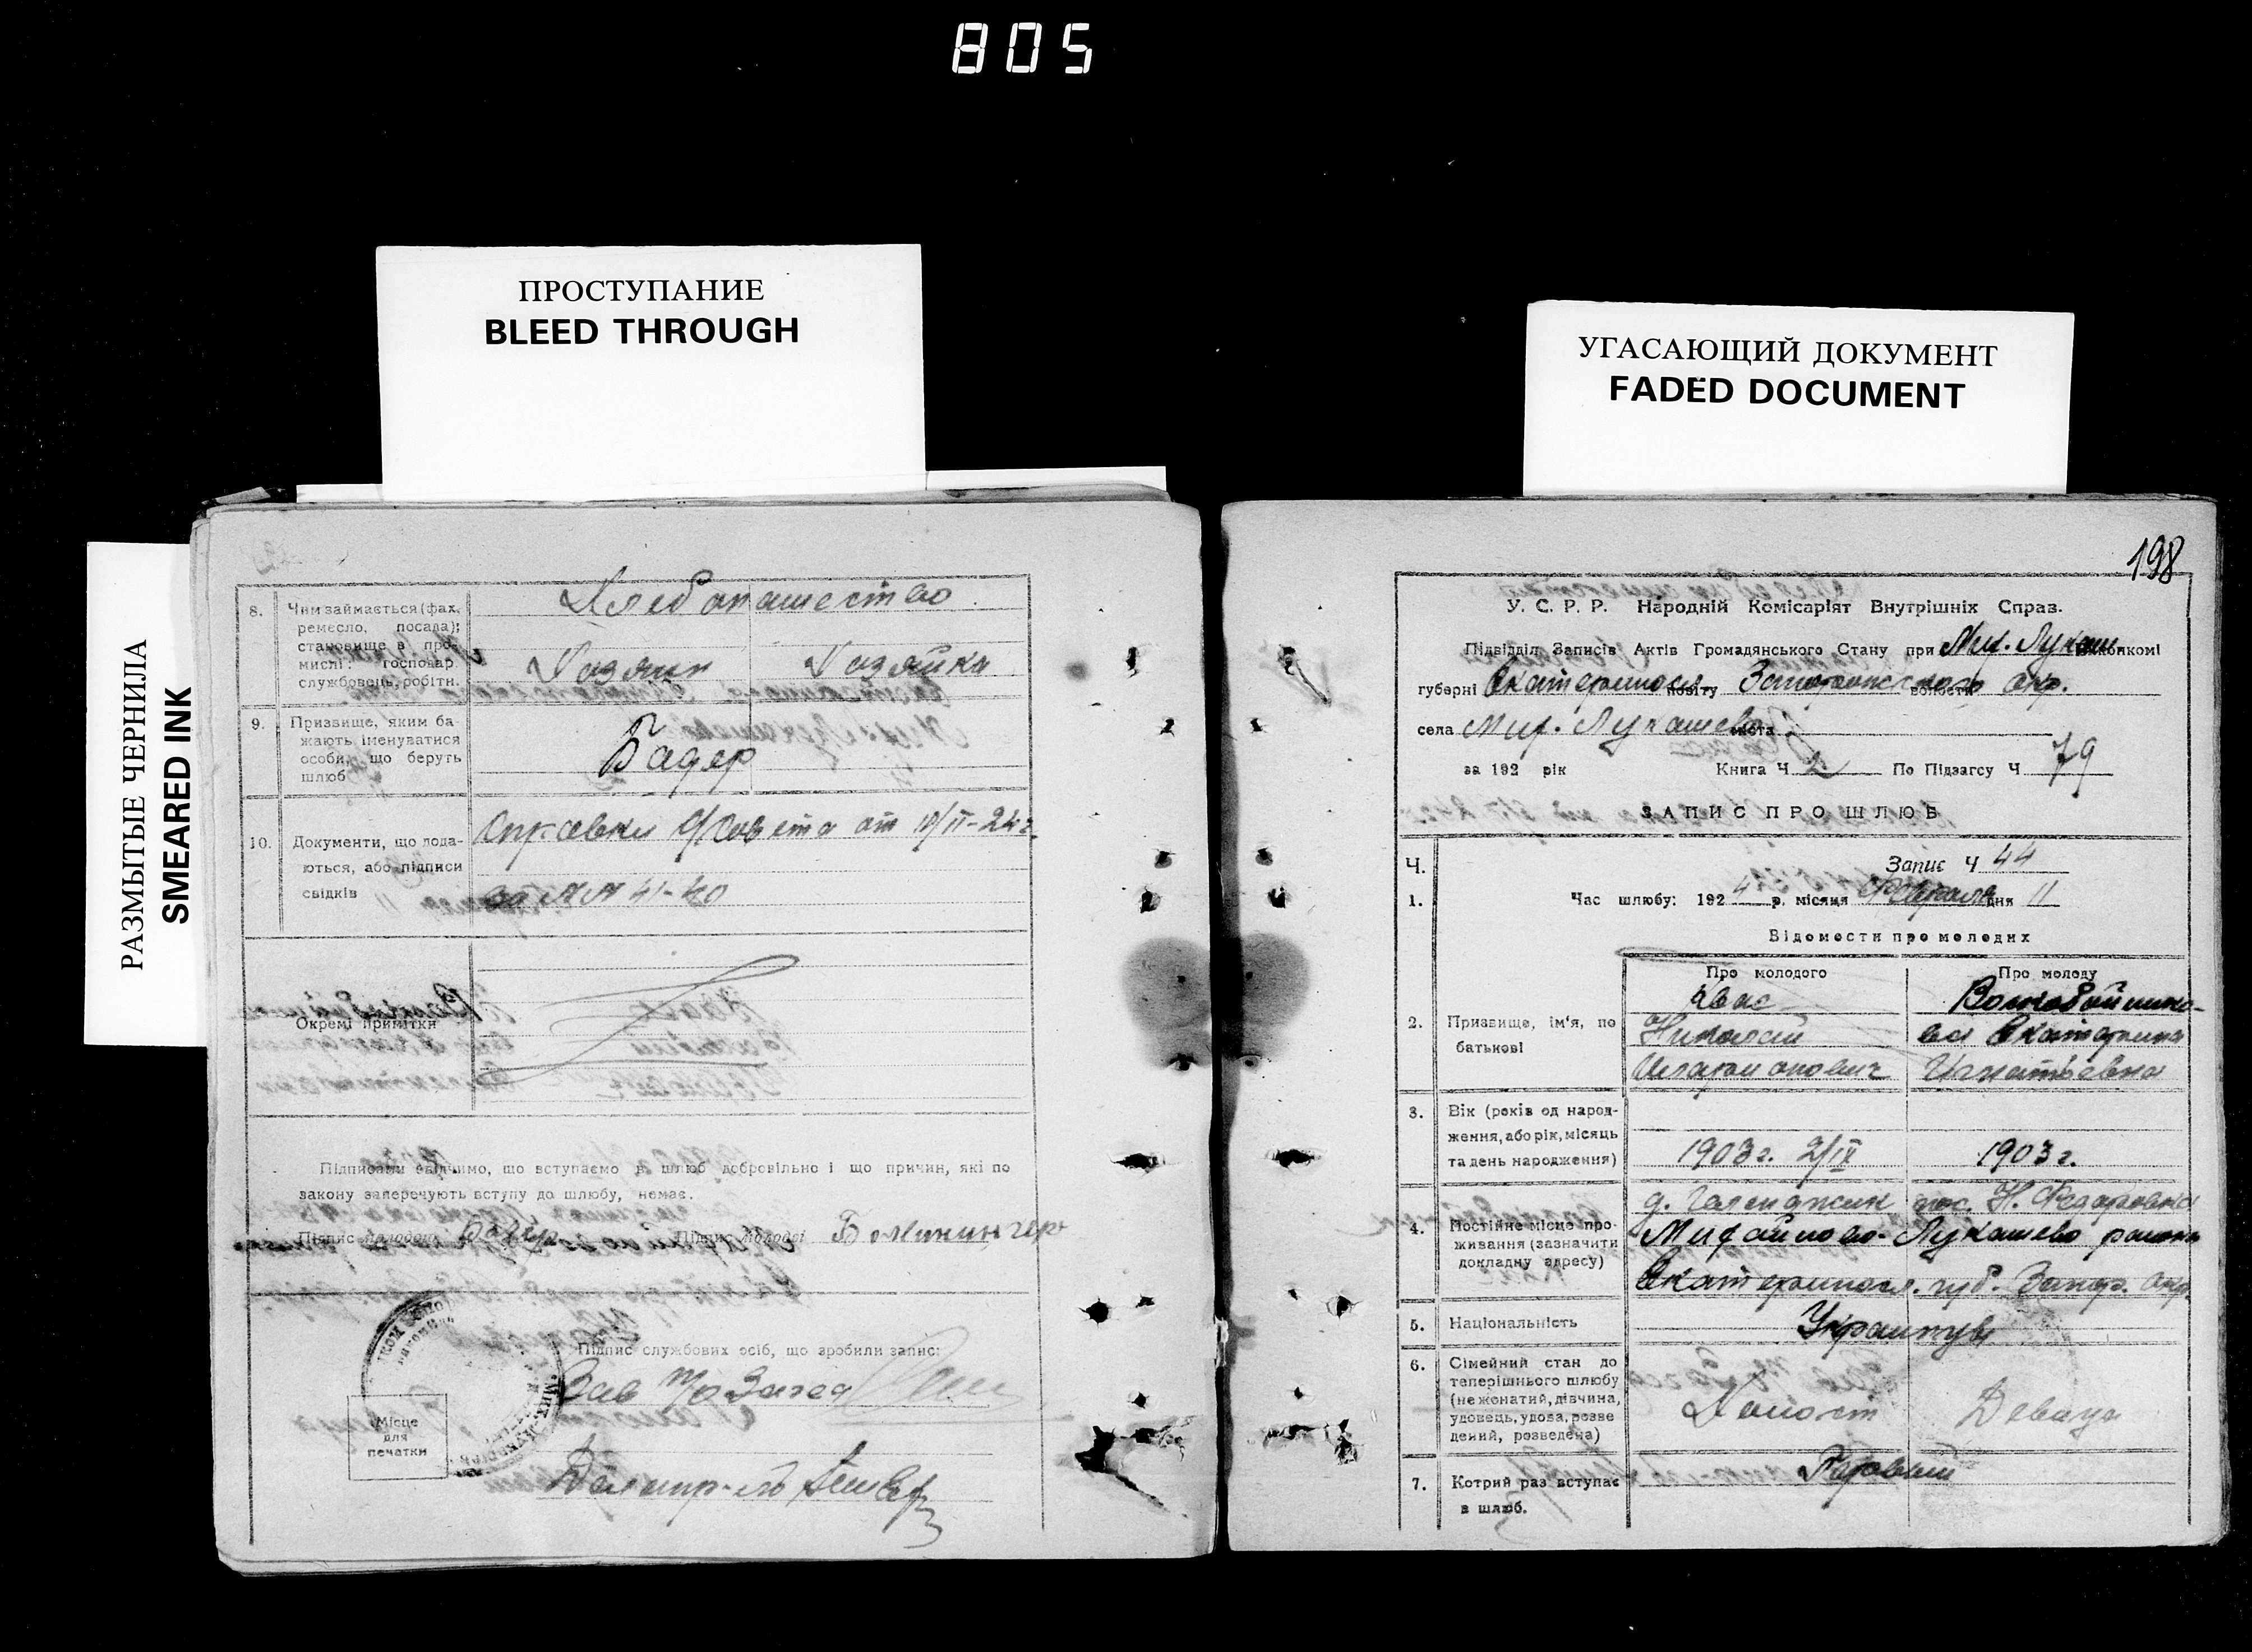 805
ПРОСТУПАНИЕ
BLEED THROUGH
УГАСАЮЩИЙ ДОКУМЕНТ
FADED DOCUMENT
РАЗМЫТЫЕ ЧЕРНИЛА
SMEARED INK
8.
Чим займається (фах,
ремесло, посада);
становище в про-
мислі: господар
службовець, робітн.
Хлебопашество
Хозяин
Хозяйка
9.
Призвище, яким ба-
жають іменуватися
особи, що беруть
шлюб
Бадер
10.
Документи, що пода-
ються, або підписи
свідків
Справки с/Совета от 10/II-24г.
за №№ 41-40
Окремі примітки
Підписами свідчимо, що вступаємо в шлюб добровільно і що причин, які по
закону заперечують вступу до шлюбу, немає.
Підпис молодого
Підпис молодої
Підпис службових осіб, що зробили запис:
Зав п/о Загса
Місце
для
печатки
Делопр-ль
198
У. С. Р. Р. Народній Комісаріят Внутрішніх Справ.
Підвідділ Записів Актів Громадянського Стану при Мих. Лукаш. виконкомі
губерні Екатериносл. повіту Запорожского волости окр.
села Мих. Лукашево міста
за 192 рік Книга Ч 2 По Підзагсу Ч 79
ЗАПИС ПРО ШЛЮБ
Ч.
Запис Ч 44
1.
Час шлюбу: 1924 р. місяця Февраля дня 11
Відомости про молодих
Про молодого
Про молоду
2.
Призвище, ім'я, по
батькові
Квас
Николай
Иларионович
Екатерина
Игнатьевна
3.
Вік (років од народ-
ження, або рік, місяць
та день народження)
1903г. 2/IX
1903г.
4.
Постійне місце про-
живання (зазначити
докладну адресу)
д. Геленджик пос. Н. Федоровка
Михайлово-Лукашево района
Екатериносл. губ. Запор. окр.
5.
Національність
Украинцы
6.
Сімейний стан до
теперішнього шлюбу
(нежонатий, дівчина,
удовець, удова, розве
дений, розведена)
Холост
Девица
7.
Котрий раз вступає
в шлюб.
Первый